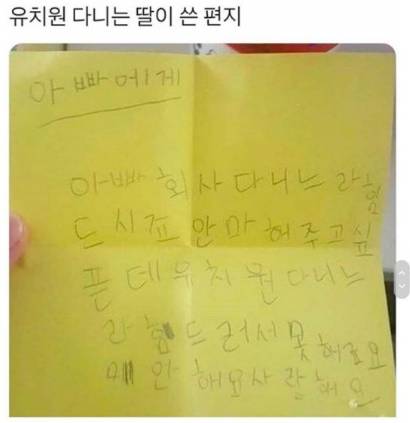 유치원 다니는 딸이 쓴 편지
아빠에게
아빠 회사 다니느라힘
드시죠 안마해주고싶
픈데 유치원다니느
라 힘드러서 못해죠요
미안해요 사랑해요